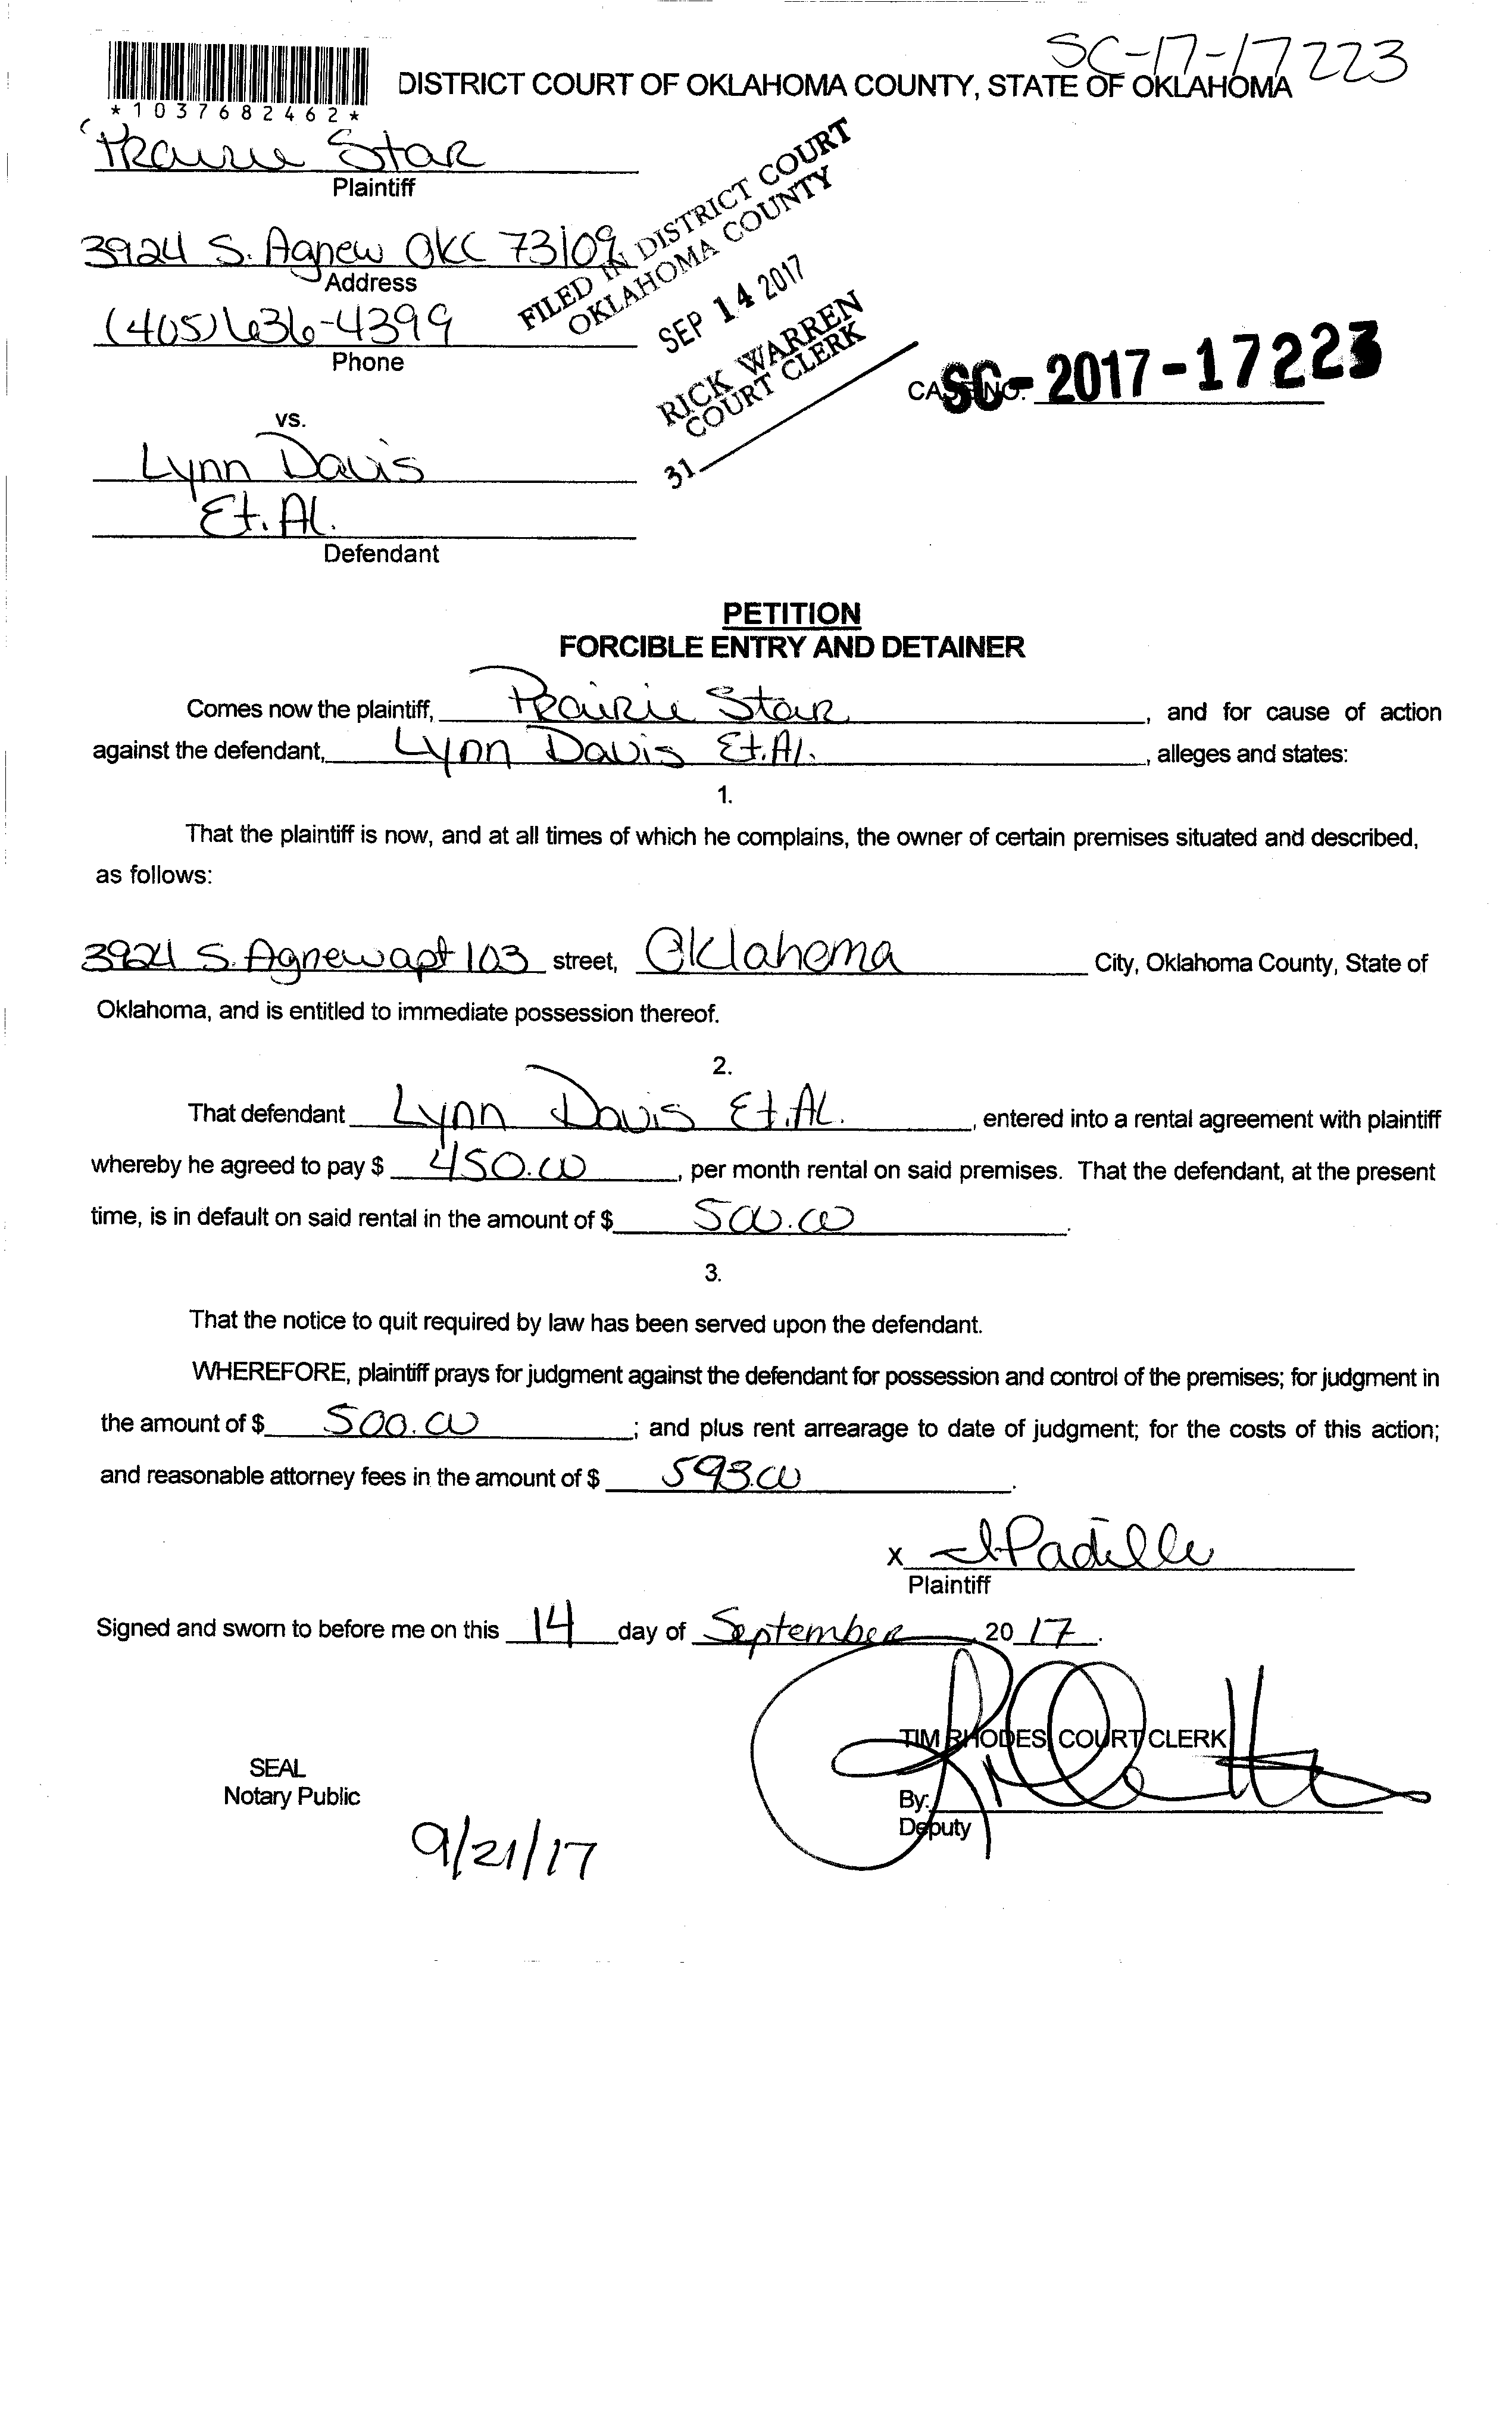 SC-17-17223
DISTRICT COURT OF OKLAHOMA COUNTY, STATE OF OKLAHOMA
*1037682462*
Prairie Star
Plaintiff
3924 S. Agnew OKC 73109
Address
(405) 636-4399
Phone
FILED IN DISTRICT COURT
OKLAHOMA COUNTY
SEP 14 2017
RICK WARREN
COURT CLERK
31
CASE NO. SC-2017-17223
vs.
Lynn Davis
Et. Al.
Defendant
PETITION
FORCIBLE ENTRY AND DETAINER
Comes now the plaintiff, Prairie Star, and for cause of action
against the defendant, Lynn Davis Et. Al., alleges and states:
1.
That the plaintiff is now, and at all times of which he complains, the owner of certain premises situated and described,
as follows:
3924 S. Agnew apt 103 street, Oklahoma City, Oklahoma County, State of
Oklahoma, and is entitled to immediate possession thereof.
2.
That defendant Lynn Davis Et. Al., entered into a rental agreement with plaintiff
whereby he agreed to pay $ 450.00, per month rental on said premises. That the defendant, at the present
time, is in default on said rental in the amount of $ 500.00.
3.
That the notice to quit required by law has been served upon the defendant.
WHEREFORE, plaintiff prays for judgment against the defendant for possession and control of the premises; for judgment in
the amount of $ 500.00; and plus rent arrearage to date of judgment; for the costs of this action;
and reasonable attorney fees in the amount of $ 593.00.
x Padilla
Plaintiff
Signed and sworn to before me on this 14 day of September, 2017.
TIM RHODES, COURT CLERK
SEAL
Notary Public
By:
Deputy
9/21/17